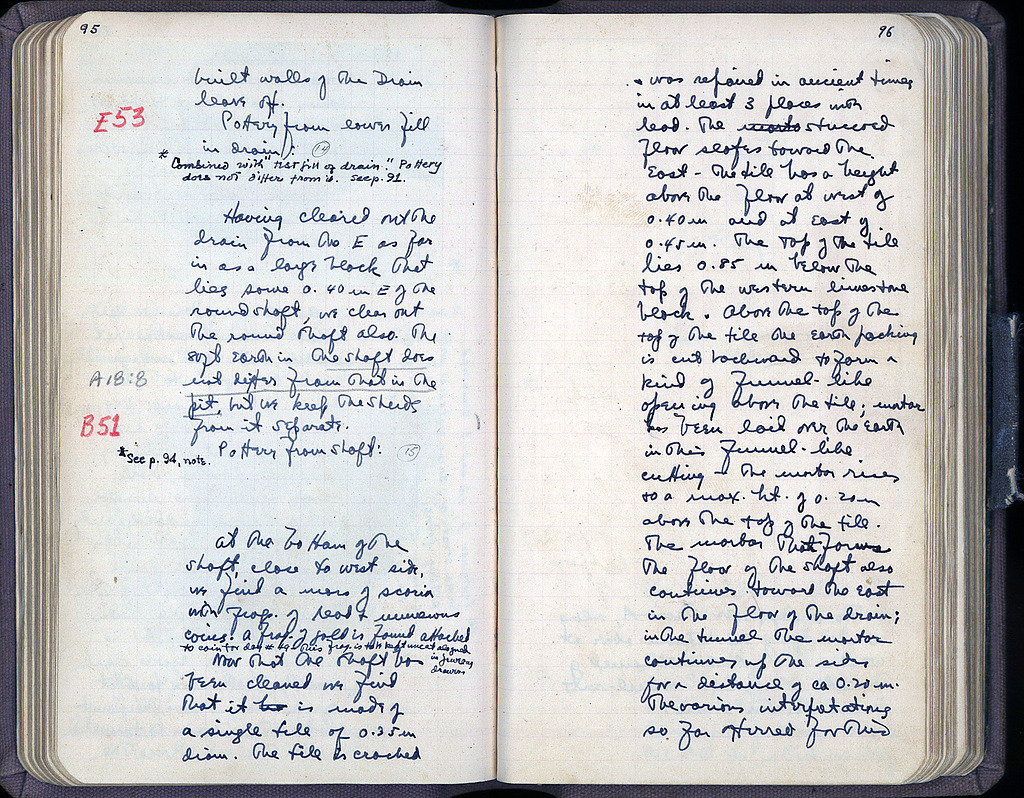 95
built walls of the Drain
leave off.
E53
Pottery from lower fill
in drain: 14
* Combined with "first fill of drain." Pottery
does not differ from it. see p. 91.
Having cleared out the
drain from the E as far
in as a large block that
lies some 0.40 m E of the
round shaft, we clear out
the round shaft also. The
soft earth in the shaft does
A18:8
not differ from that in the
pit, but we keep the sherds
B51
from it separate.
Pottery from shaft: 15
* See p. 94, note.
At the bottom of the
shaft, close to west side,
we find a mass of scoria
with frags. of lead & numerous
coins. A frag. of gold is found attached
to coin for day # This frag. is kept uncatalogued
in jewelry
drawers
Now that the shaft has
been cleaned we find
that it is made of
a single tile of 0.35 m
diam. The tile is cracked
96
+ was repaired in ancient times
in at least 3 places with
lead. The stuccoed
floor slopes toward the
East - The tile has a height
above the floor at west of
0.40 m and at East of
0.45 m. The top of the tile
lies 0.85 m below the
top of the western limestone
block. Above the top of the
top of the tile the earth packing
is cut backward to form a
kind of funnel-like
opening above the tile; mortar
has been laid over the earth
in this funnel-like
cutting - The mortar rises
to a max. ht. of 0.20 m
above the top of the tile.
The mortar that forms
the floor of the shaft also
continues toward the East
in the floor of the drain;
in the tunnel the mortar
continues up the sides
for a distance of ca 0.20 m.
The various interpretations
so far offered for this